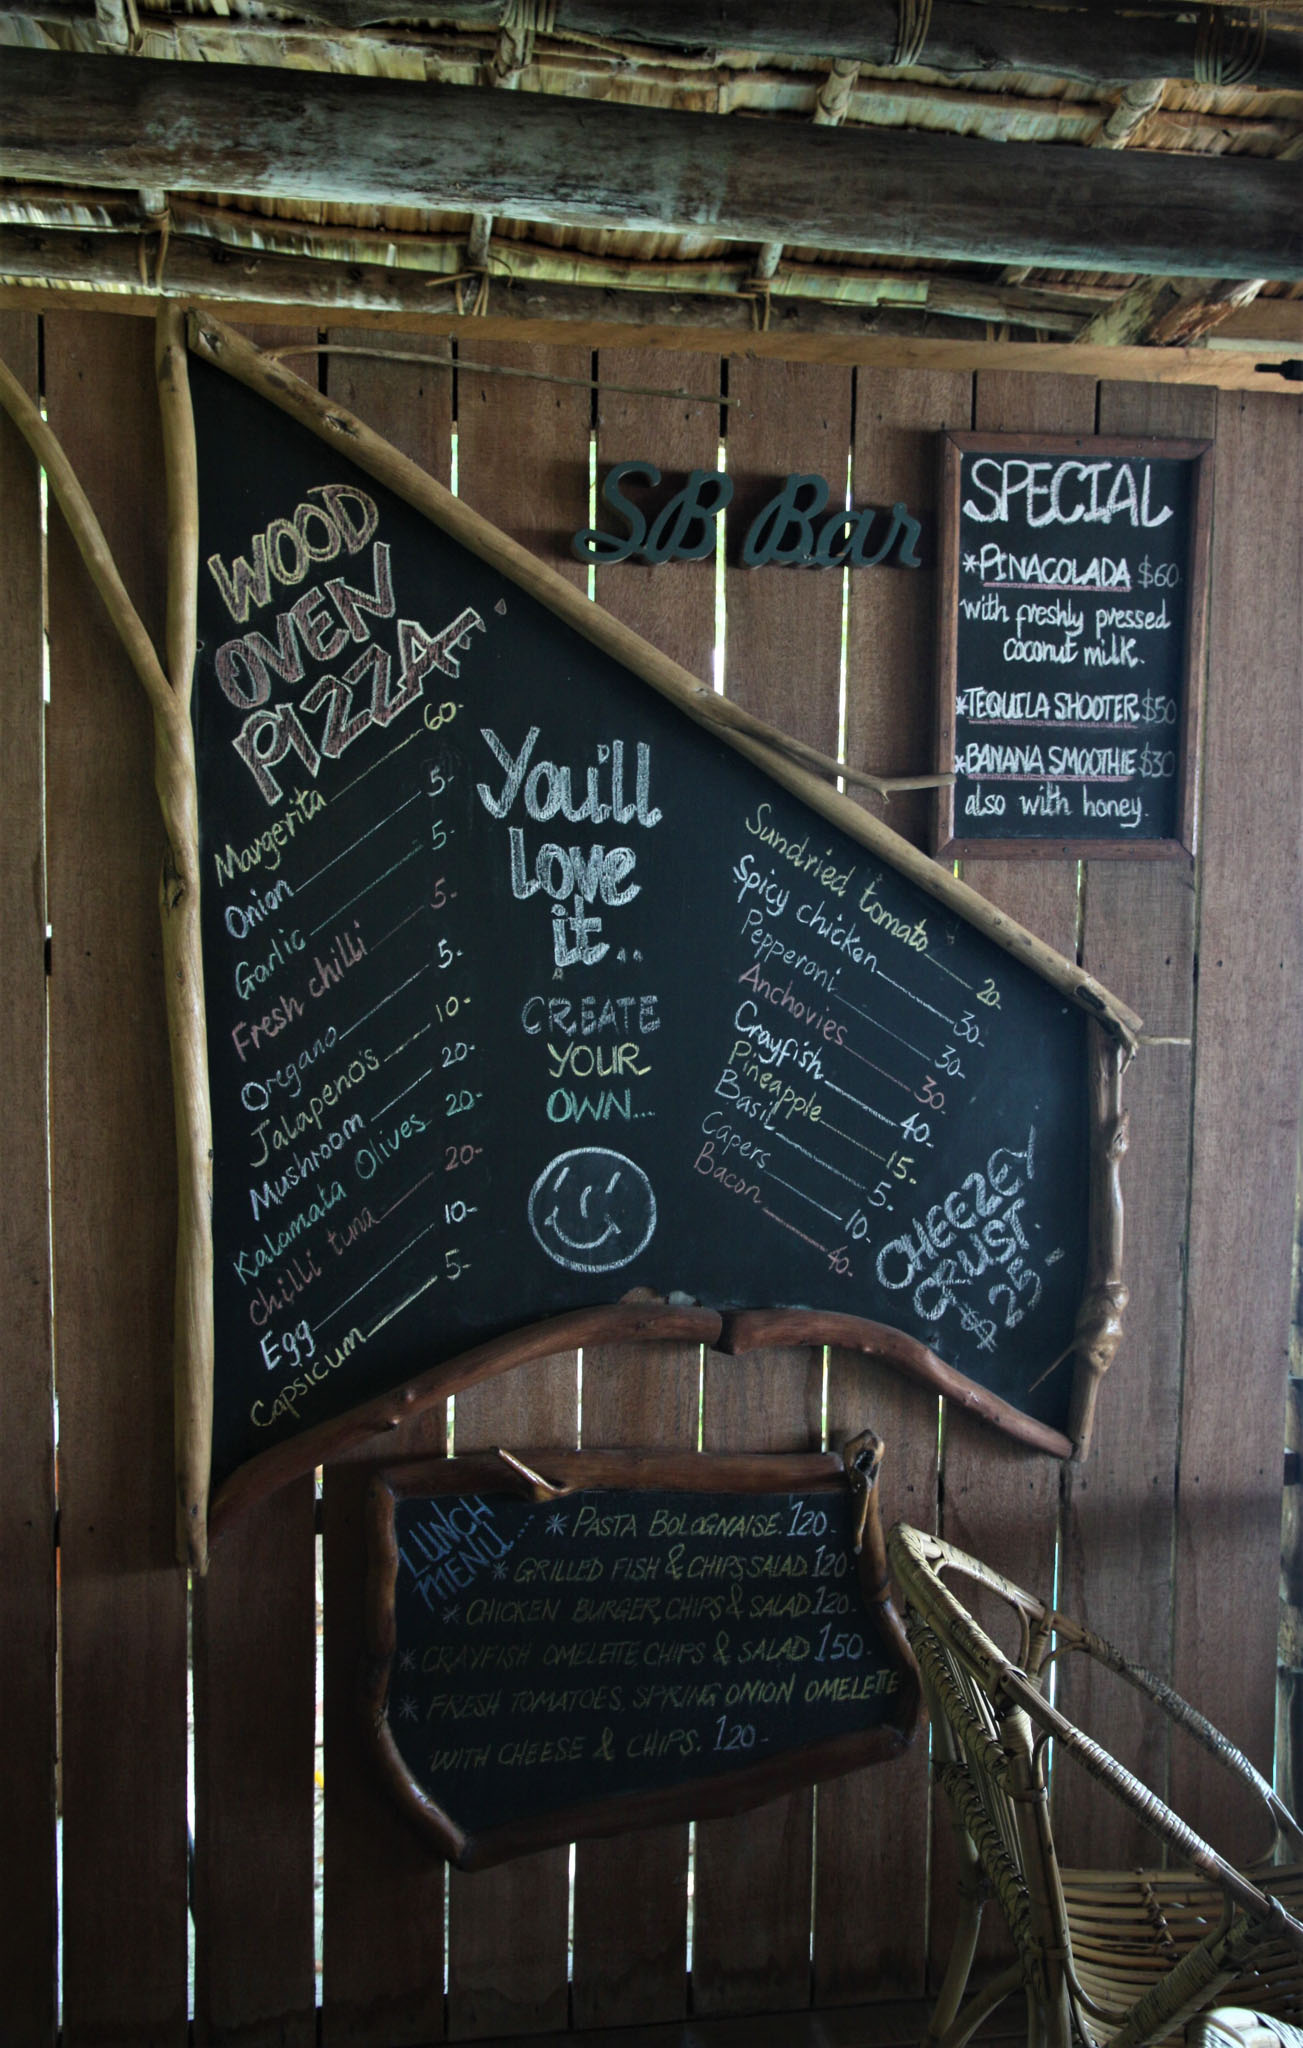 WOOD
OVEN
PIZZA
Margerita 60-
Onion 5-
Garlic 5-
Fresh chilli 5-
Oregano 5-
Jalapeno's 10-
Mushroom 20-
Kalamata Olives 20-
Chilli tuna 20-
Egg 10-
Capsicum 5-
You'll
Love
it..
CREATE
YOUR
OWN...
Sundried tomato 20-
Spicy chicken 30-
Pepperoni 30-
Anchovies 30-
Crayfish 40-
Pineapple 15-
Basil 5-
Capers 10-
Bacon 40-
CHEEZEY
CRUST
$25
SB Bar
SPECIAL
*PINACOLADA $60-
with freshly pressed
coconut milk.
*TEQUILA SHOOTER $50
*BANANA SMOOTHIE $30
also with honey.
LUNCH
MENU....
* PASTA BOLOGNAISE. 120-
* GRILLED FISH & CHIPS, SALAD. 120-
* CHICKEN BURGER, CHIPS & SALAD 120-
* CRAYFISH OMELETTE, CHIPS & SALAD 150-
* FRESH TOMATOES, SPRING ONION OMELETTE
WITH CHEESE & CHIPS. 120-